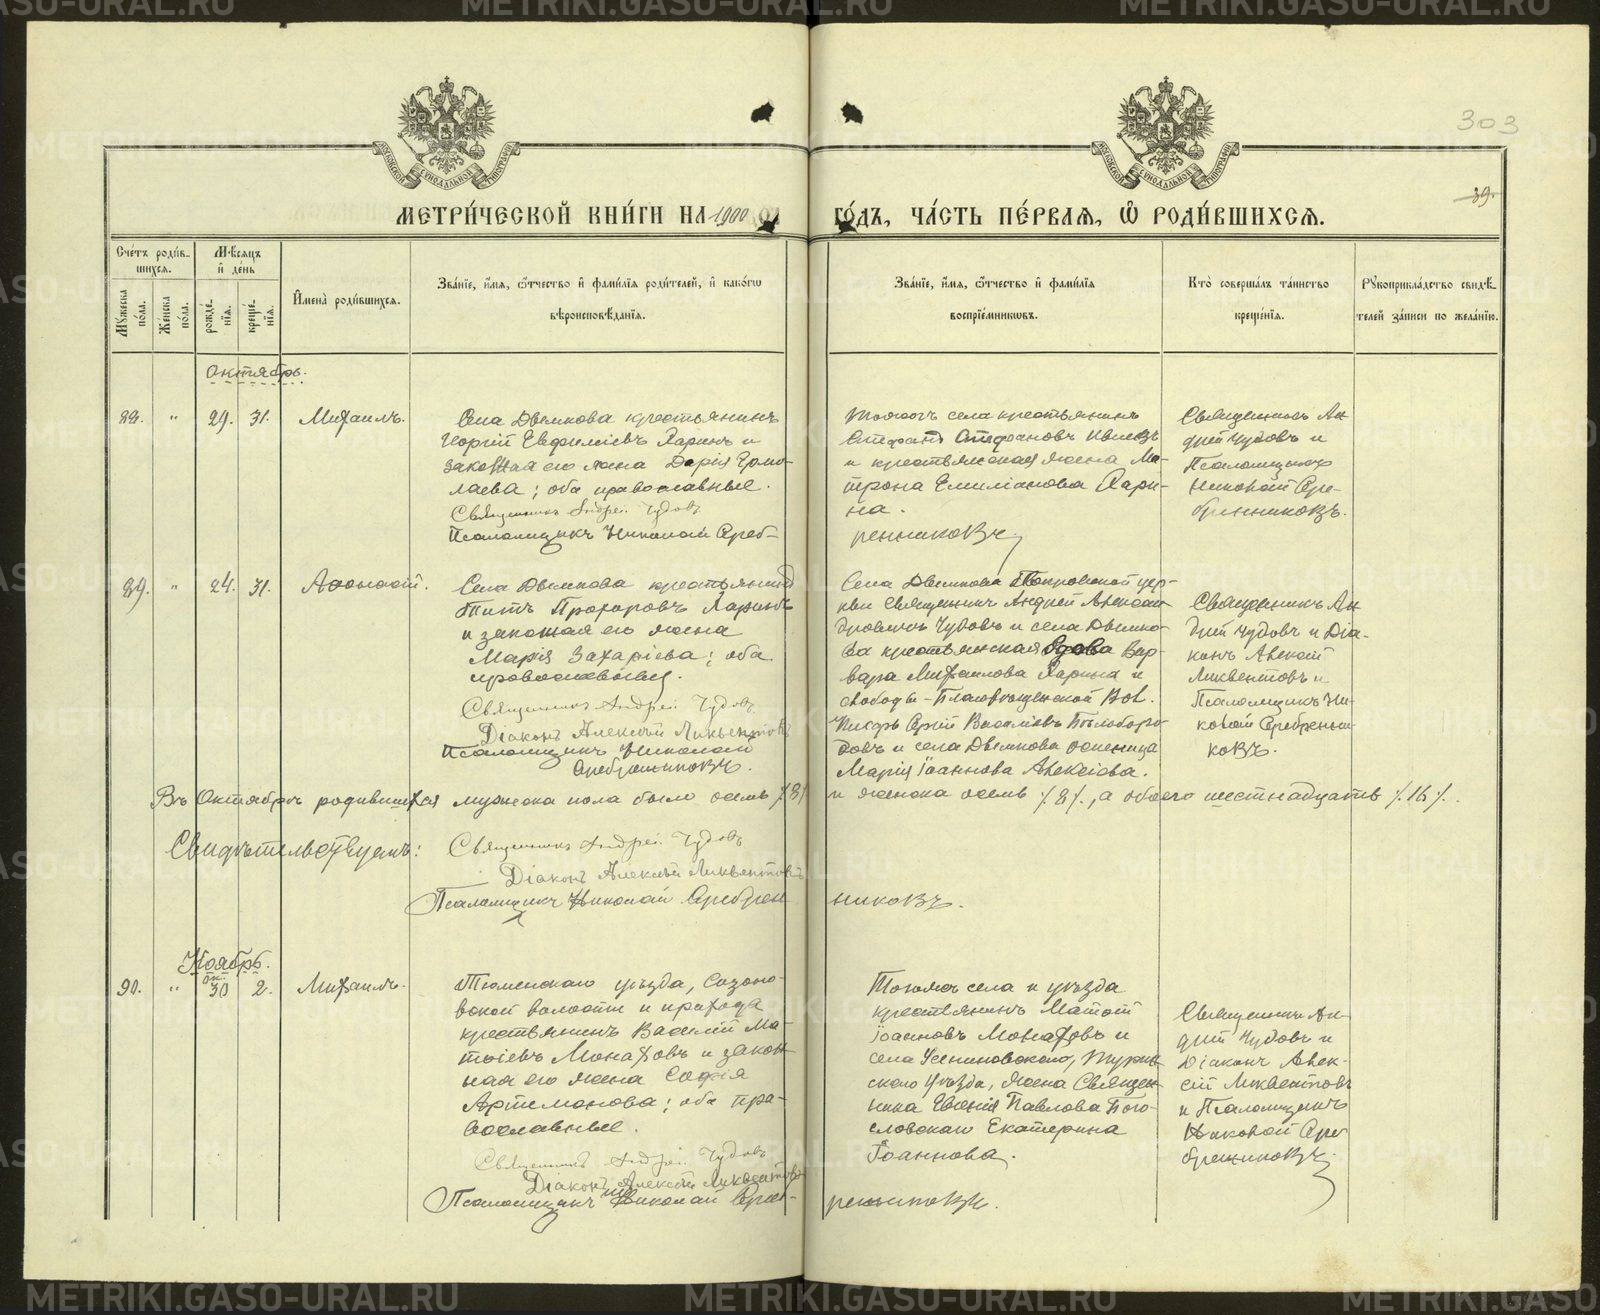 METRIKI.GASO-URAL.RU
303
39.
МОСКОВСКОЙ СѴНОДАЛЬНОЙ ТИПОГРАФІИ
МЕТРИ́ЧЕСКОЙ КНИ́ГИ НА 1900
ГО́ДЪ, ЧА́СТЬ ПЕ́РВАЯ, Ѽ РОДИ́ВШИХСЯ.
Сче́тъ роди́в-
шихся.
Мѣ́сяцъ
и҆ де́нь
Мꙋ́жеска по́ла.
Же́нска по́ла.
рожде́нїя.
креще́нїя.
И҆мена̀ роди́вшихся.
Зва́нїе, и҆́мя, ѻ҆́тчество и҆ фами́лїя роди́телей, и҆ како́гѡ
вѣроисповѣ́данїя.
Зва́нїе, и҆́мя, ѻ҆́тчество и҆ фами́лїя
воспрїе́мникѡвъ.
Кто̀ соверша́лъ та́инство
креще́нїя.
Рꙋкоприкла́дство свидѣ́-
телей за́писи по жела́нїю.
Октябрь.
88. " 29. 31. Михаилъ.
Села Двѣмкова крестьянинъ
Георгій Евфиміевъ Ларинъ и
законная его жена Дарія Ермо-
лаева; оба православные.
Священникъ Андрей Чудовъ
Псаломщикъ Николай Среб-
ренниковъ
Тогожъ села крестьянинъ
Стефанъ Стефановъ
и крестьянская жена Ма-
трона Емиліанова Лари-
на.
Священникъ Ан-
дрей Чудовъ и
Псаломщикъ
Николай Сре-
бренниковъ.
89. " 24. 31. Аѳонасій.
Села Двѣмкова крестьянинъ
Титъ Прохоровъ Ларинъ
и законная его жена
Марія Захаріева; оба
православные.
Священникъ Андрей Чудовъ
Діаконъ Алексѣй Ликвентовъ
Псаломщикъ Николай
Сребренниковъ.
Села Двѣмкова Покровской цер-
кви священникъ Андрей Алексан-
дровичъ Чудовъ и села Двѣмко-
ва крестьянская вдова Вар-
вара Михаилова Ларина и
слободы-Благовѣщенской Вол.
Писарь Сергій Василіевъ Бѣлоборо-
довъ и села Двѣмкова
Марія Іоаннова Алексіева.
Священникъ Ан-
дрей Чудовъ и Діа-
конъ Алексѣй
Ликвентовъ и
Псаломщикъ Ни-
колай Сребренни-
ковъ.
Въ Октябрѣ родившихся мужеска пола было осмь /8/ и женска осмь /8/, а обоего шестнадцать /16/.
Свидѣтельствуемъ: Священникъ Андрей Чудовъ
Діаконъ Алексѣй Ликвентовъ
Псаломщикъ Николай Сребрен
никовъ.
Ноябрь.
ок.
90. " 30 2. Михаилъ.
Тюменскаго уѣзда, Созоно-
вской волости и прихода
крестьянинъ Василій Ма-
тѳіевъ Монаховъ и закон-
ная его жена Софія
Артемонова; оба пра-
вославные.
Священникъ Андрей Чудовъ
Діаконъ Алексѣй Ликвентовъ
Псаломщикъ Николай Среб-
ренниковъ.
Тогожъ села и уѣзда
крестьянинъ Матѳій
Іоанновъ Монаховъ и
села Усениновскаго, Турин-
скаго уѣзда, жена Священ-
ника Евгенія Павлова Бого-
словскаго Екатерина
Іоаннова.
Священникъ Ан-
дрей Чудовъ и
Діаконъ Алек-
сѣй Ликвентовъ
и Псаломщикъ
Николай Сре-
бренниковъ.